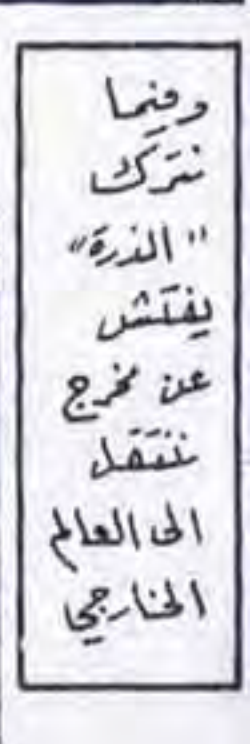 وفيما
نترك
"الذرة"
يفتش
عن مخرج
ننتقل
الى العالم
الخارجي